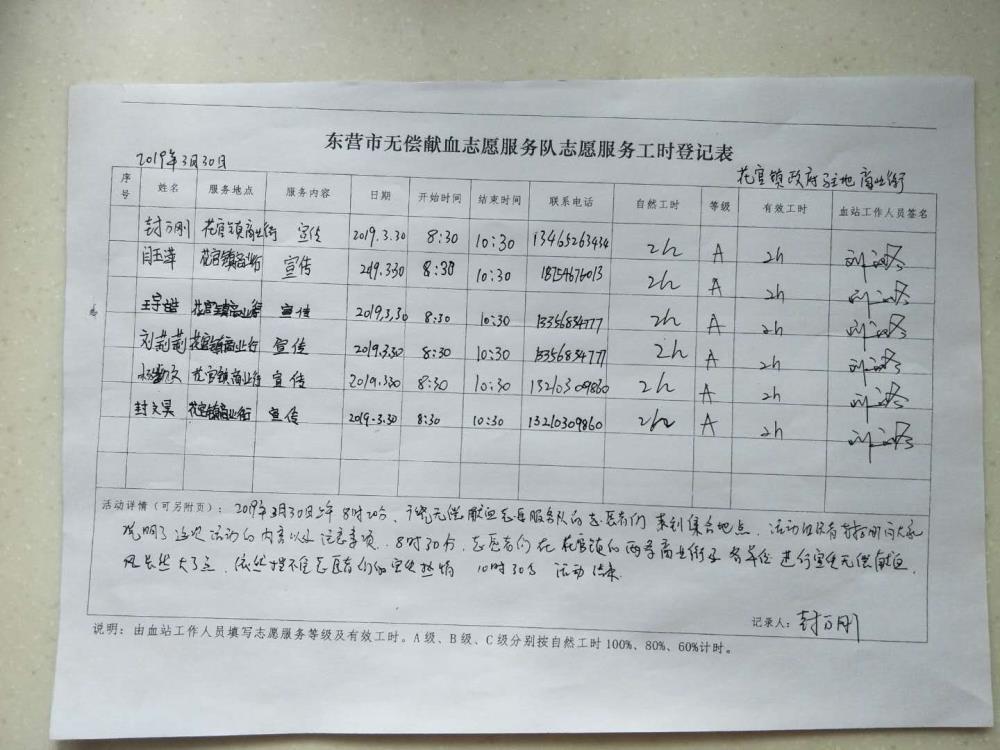 东营市无偿献血志愿服务队志愿服务工时登记表
2019年3月30日 花官镇政府驻地商业街
序号 姓名 服务地点 服务内容 日期 开始时间 结束时间 联系电话 自然工时 等级 有效工时 血站工作人员签名
封万刚 花官镇商业街 宣传 2019.3.30 8:30 10:30 13465263434 2h A 2h
闫玉萍 花官镇商业街 宣传 2019.3.30 8:30 10:30 18754676013 2h A 2h
花官镇商业街 宣传 2019.3.30 8:30 10:30 13356834777 2h A 2h
刘莉莉 花官镇商业街 宣传 2019.3.30 8:30 10:30 13356834777 2h A 2h
花官镇商业街 宣传 2019.3.30 8:30 10:30 13210309860 2h A 2h
封文昊 花官镇商业街 宣传 2019.3.30 8:30 10:30 13210309860 2h A 2h
活动详情（可另附页）：2019年3月30日上午8时20分，广饶无偿献血志愿服务队的志愿者们来到集合地点，活动组织者封万刚向大家
说明了这次活动的内容以及注意事项。8时30分，志愿者们在花官镇的两条商业街及各单位进行宣传无偿献血，
风虽然大了点，依然挡不住志愿者们的宣传热情 10时30分 活动结束
记录人：封万刚
说明：由血站工作人员填写志愿服务等级及有效工时。A级、B级、C级分别按自然工时100%、80%、60%计时。